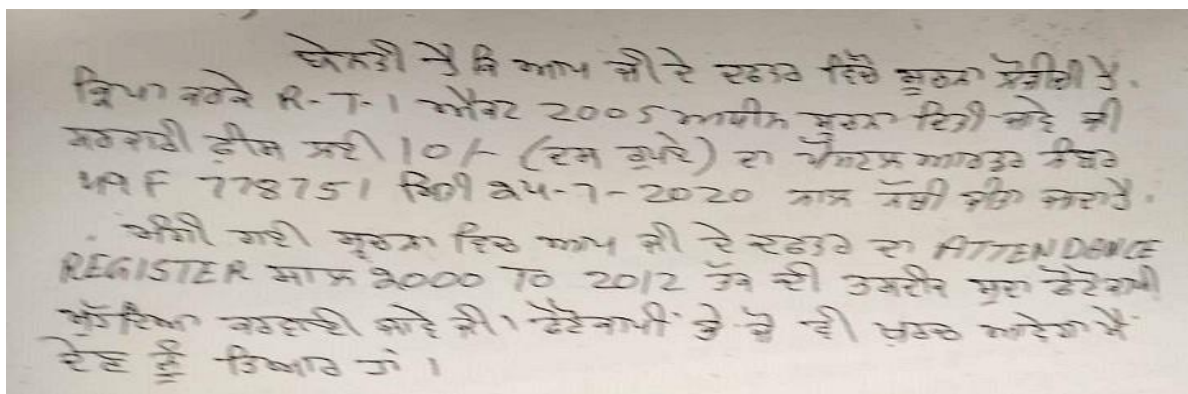 ਬੇਨਤੀ ਹੈ ਕਿ ਆਪ ਜੀ ਦੇ ਦਫਤਰ ਵਿੱਚੋ ਸੂਚਨਾ ਲੋੜੀਦੀ ਹੈ.
ਕ੍ਰਿਪਾ ਕਰਕੇ R-T-I ਐਕਟ 2005 ਅਧੀਨ ਸੂਚਨਾ ਦਿਤੀ ਜਾਵੇ ਜੀ
ਸਰਕਾਰੀ ਫੀਸ ਲਈ 10/- (ਦਸ ਰੁਪਏ) ਦਾ ਪੋਸਟਲ ਆਰਡਰ ਨੰਬਰ
F 778751 ਮਿਤੀ 24-7-2020 ਨਾਲ ਨੱਥੀ ਕੀਤਾ ਜਾਂਦਾ ਹੈ.
ਮੰਗੀ ਗਈ ਸੂਚਨਾ ਵਿਚ ਆਪ ਜੀ ਦੇ ਦਫਤਰ ਦਾ ATTENDENCE
REGISTER ਸਾਲ 2000 TO 2012 ਤੱਕ ਦੀ ਤਸਦੀਕ ਸੁਦਾ ਫੋਟੋਕਾਪੀ
ਮੁਹੱਈਆ ਕਰਵਾਈ ਜਾਵੇ ਜੀ। ਫੋਟੋਕਾਪੀ ਤੇ ਜੋ ਵੀ ਖ਼ਰਚ ਆਵੇਗਾ ਮੈਂ
ਦੇਣ ਨੂੰ ਤਿਆਰ ਹਾਂ।